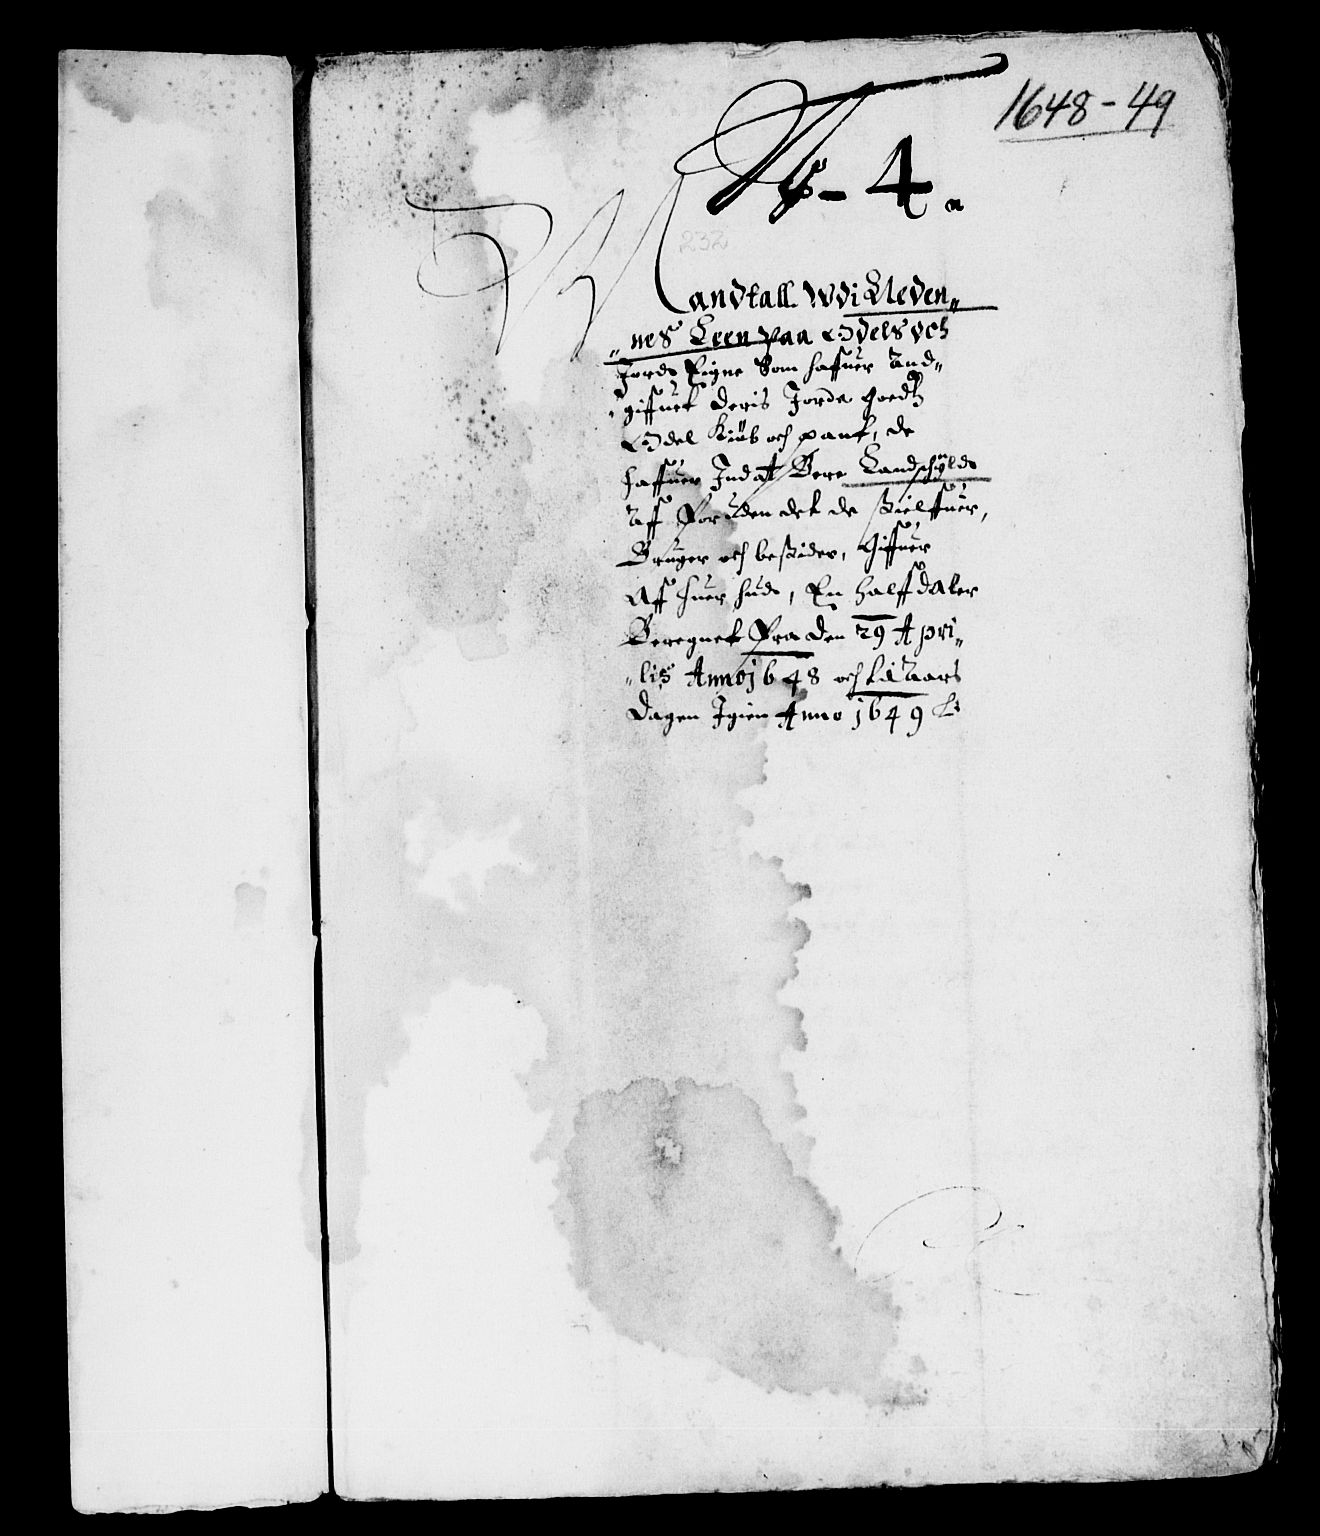 1648-49
No 4.
232
Mandtall Wdi Neden„
„nes Leen paa Odels och
Jorde Eigne Som haffuer And„
„giffuet deris Jorde goedtz
Odel Kiüb och pant, de
haffuer Indat Bere Landschÿlds
Aff Foruden det de Sielffuer,
Bruger och besider, Giffuer
Aff huer hude, En halff daler
Beregnet Fra den 29 Apri„
„lis Anno 1648 och til Aars
dagen Igien Anno 1649